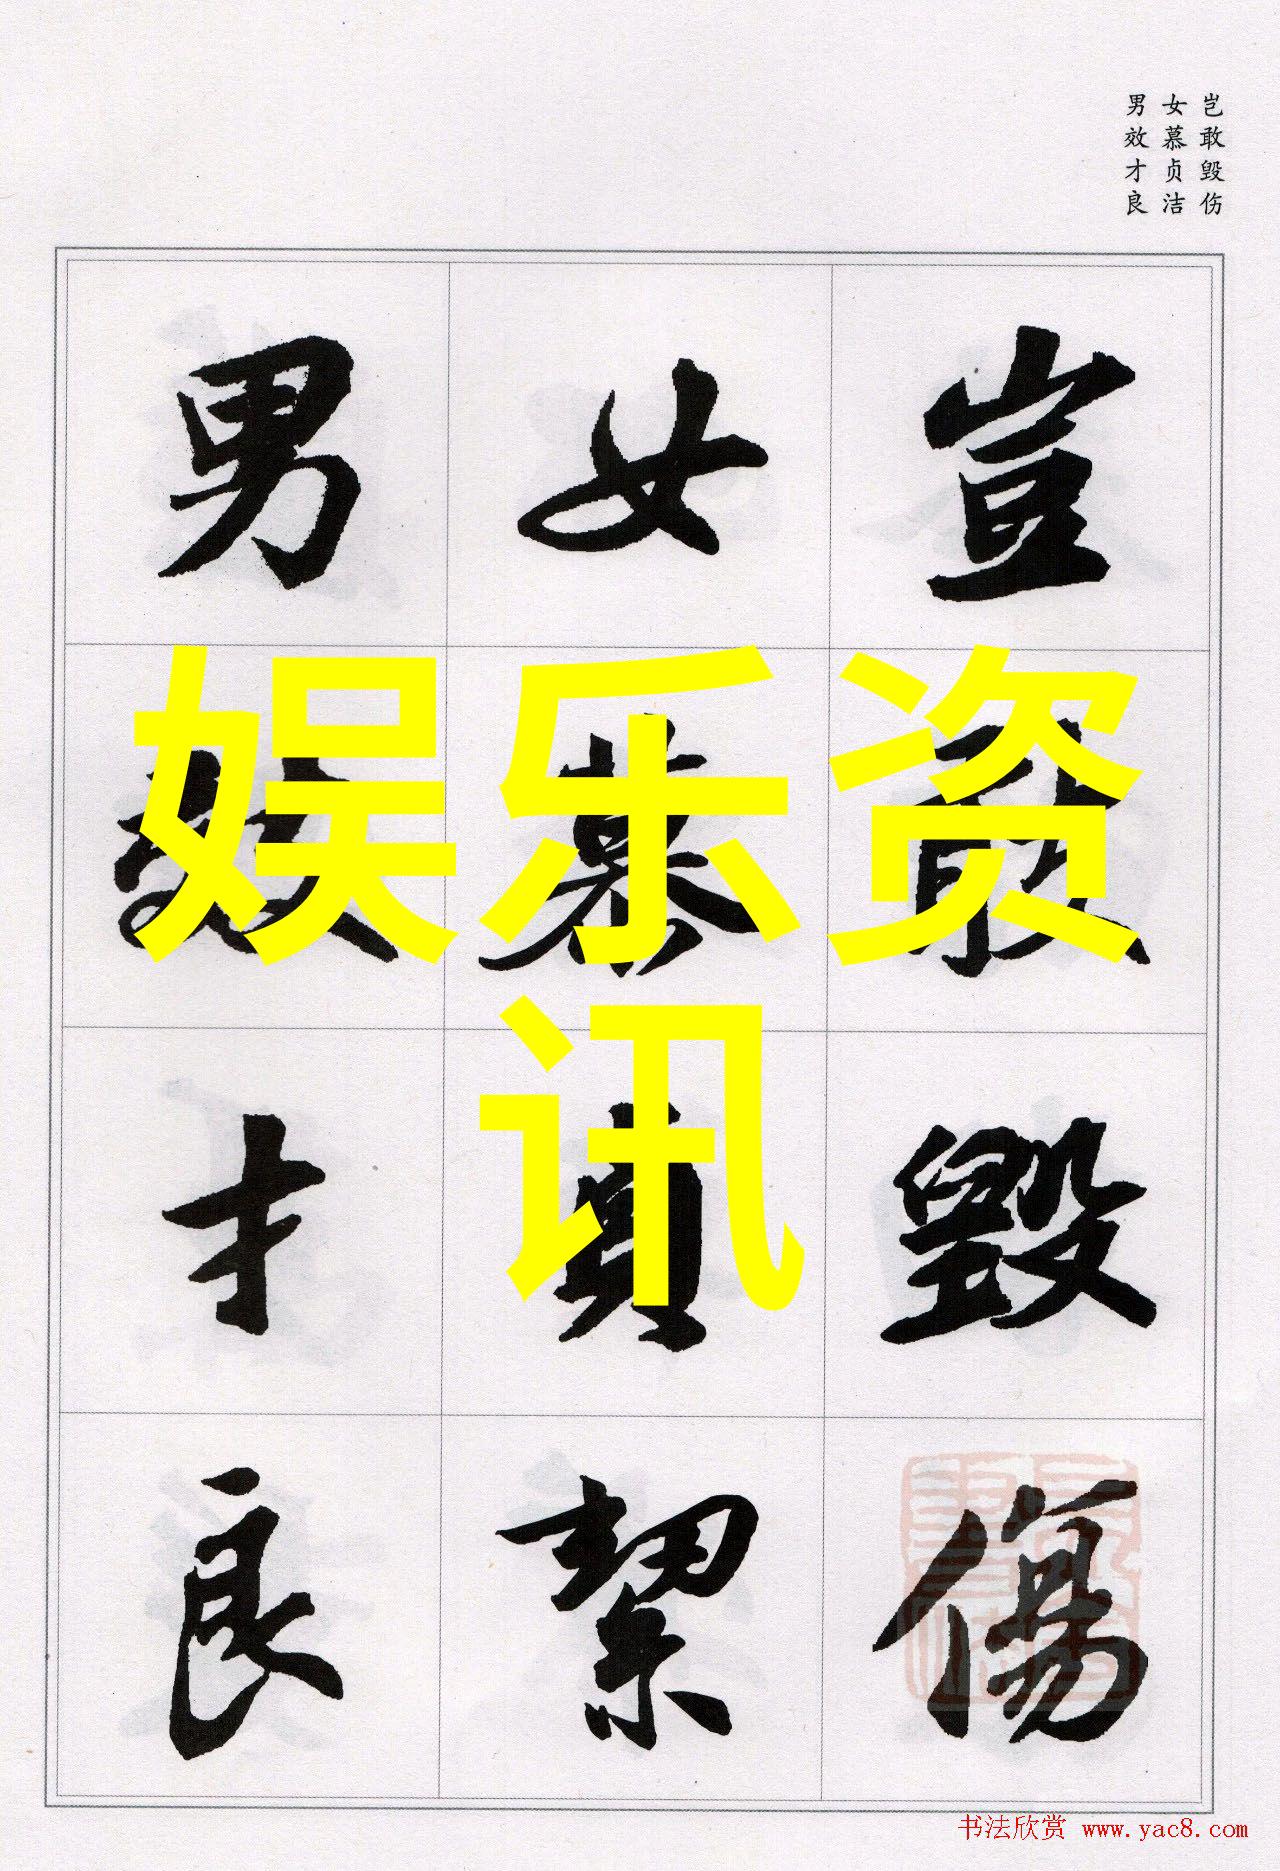 岂敢毁伤
女慕贞洁
男效才良
豈敢毀傷
女慕貞絜
男效才良
娱乐资
讯
书法欣赏 www.yac8.com